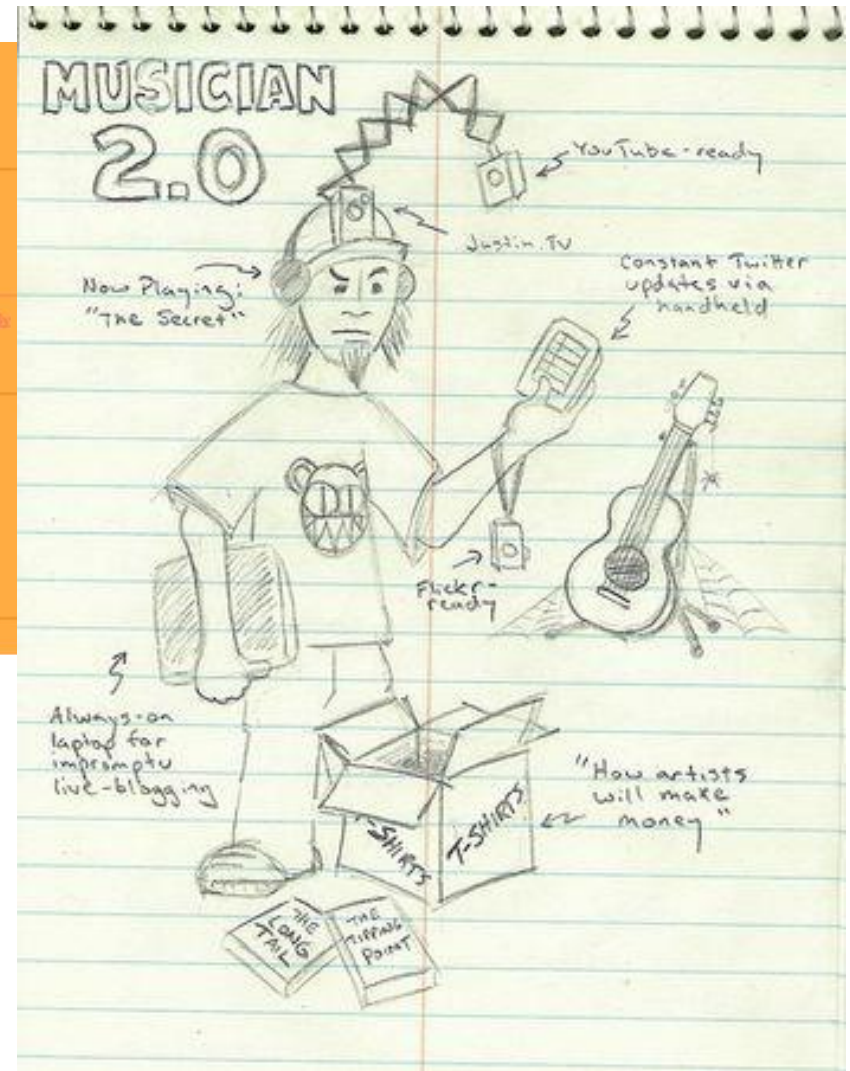 MUSICIAN
2.0
YouTube-ready
Justin.TV
Now Playing:
"The Secret"
Constant Twitter
updates via
handheld
Flickr-
ready
Always-on
laptop for
impromptu
live-blogging
"How artists
will make
money"
T-SHIRTS
T-SHIRTS
THE
LONG
TAIL
THE
TIPPING
POINT